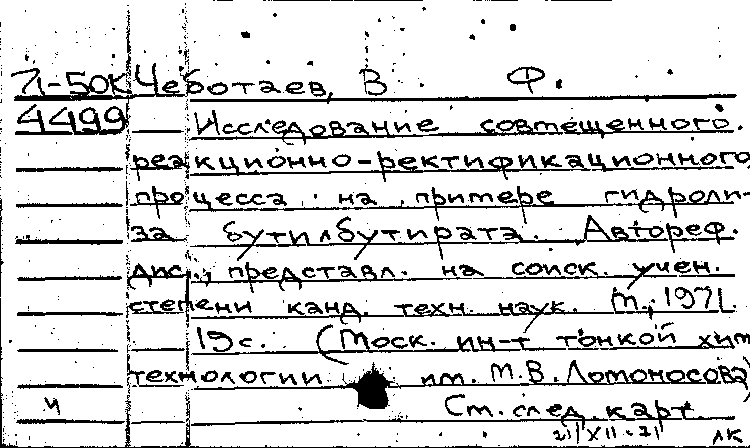 71-50К Чеботаев, В Ф.
4499 Исследование совмещенного
реакционно-ректификационного
процесса на примере гидроли-
за бутилбутирата. Автореф.
дис., представл. на соиск. учен.
степени канд. техн. наук. М., 1971.
19 с. (Моск. ин-т тонкой хим
технологии им. М.В. Ломоносова)
ч См. след. карт.
ЛК